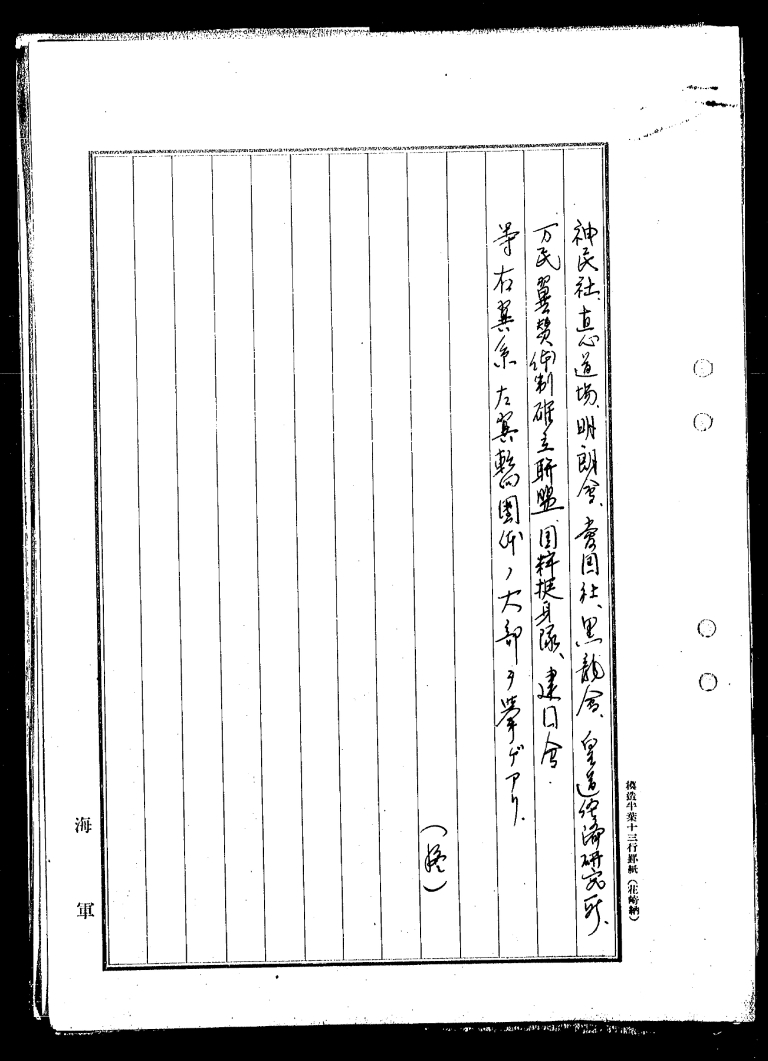 神民社、直心道場、明朗會、愛国社、黒龍会、皇道経済研究所、
万民翼賛体制確立聯盟、国粋挺身隊、建国会、
等右翼系左翼転向團体ノ大部ヲ挙ゲアリ.
(終)
海軍
模造半葉十三行罫紙(荘納)